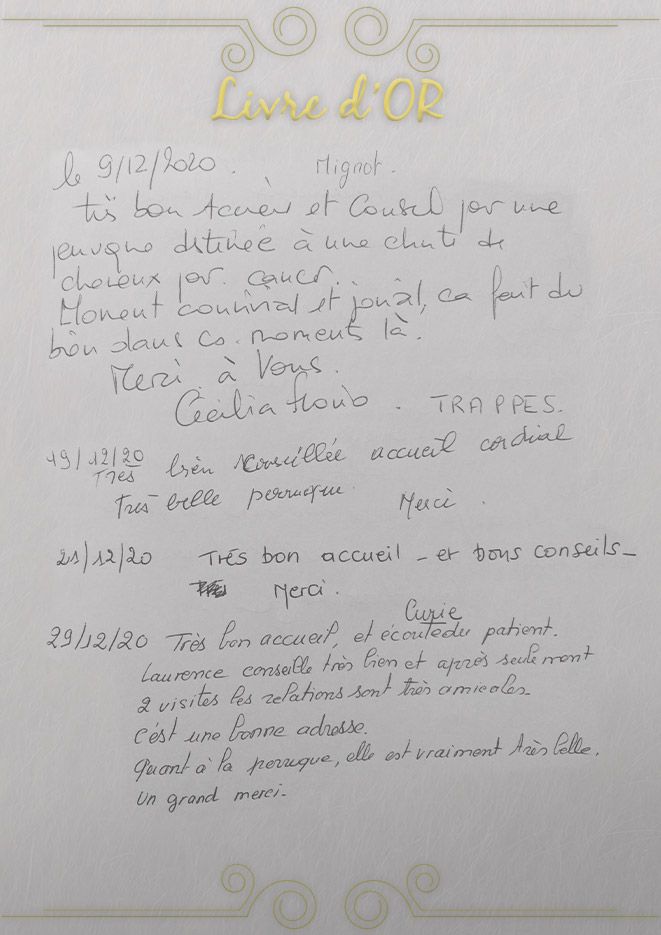 Livre d'OR
le 9/12/2020. Mignot.
très bon Accueil et Conseil pour une
perruque destinée à une chute de
cheveux par cancer.
Moment convivial et jovial, ca fait du
bien dans ces moments là.
Merci à Vous.
Cécilia TRAPPES.
19/12/20 Très bien conseillée accueil cordial
Très belle perruque. Merci.
21/12/20 Très bon accueil - et bons conseils -
Merci.
Curie
29/12/20 Très bon accueil, et écoute du patient.
Laurence conseille très bien et après seulement
2 visites les relations sont très amicales.
c'est une bonne adresse.
Quant à la perruque, elle est vraiment très belle.
Un grand merci.